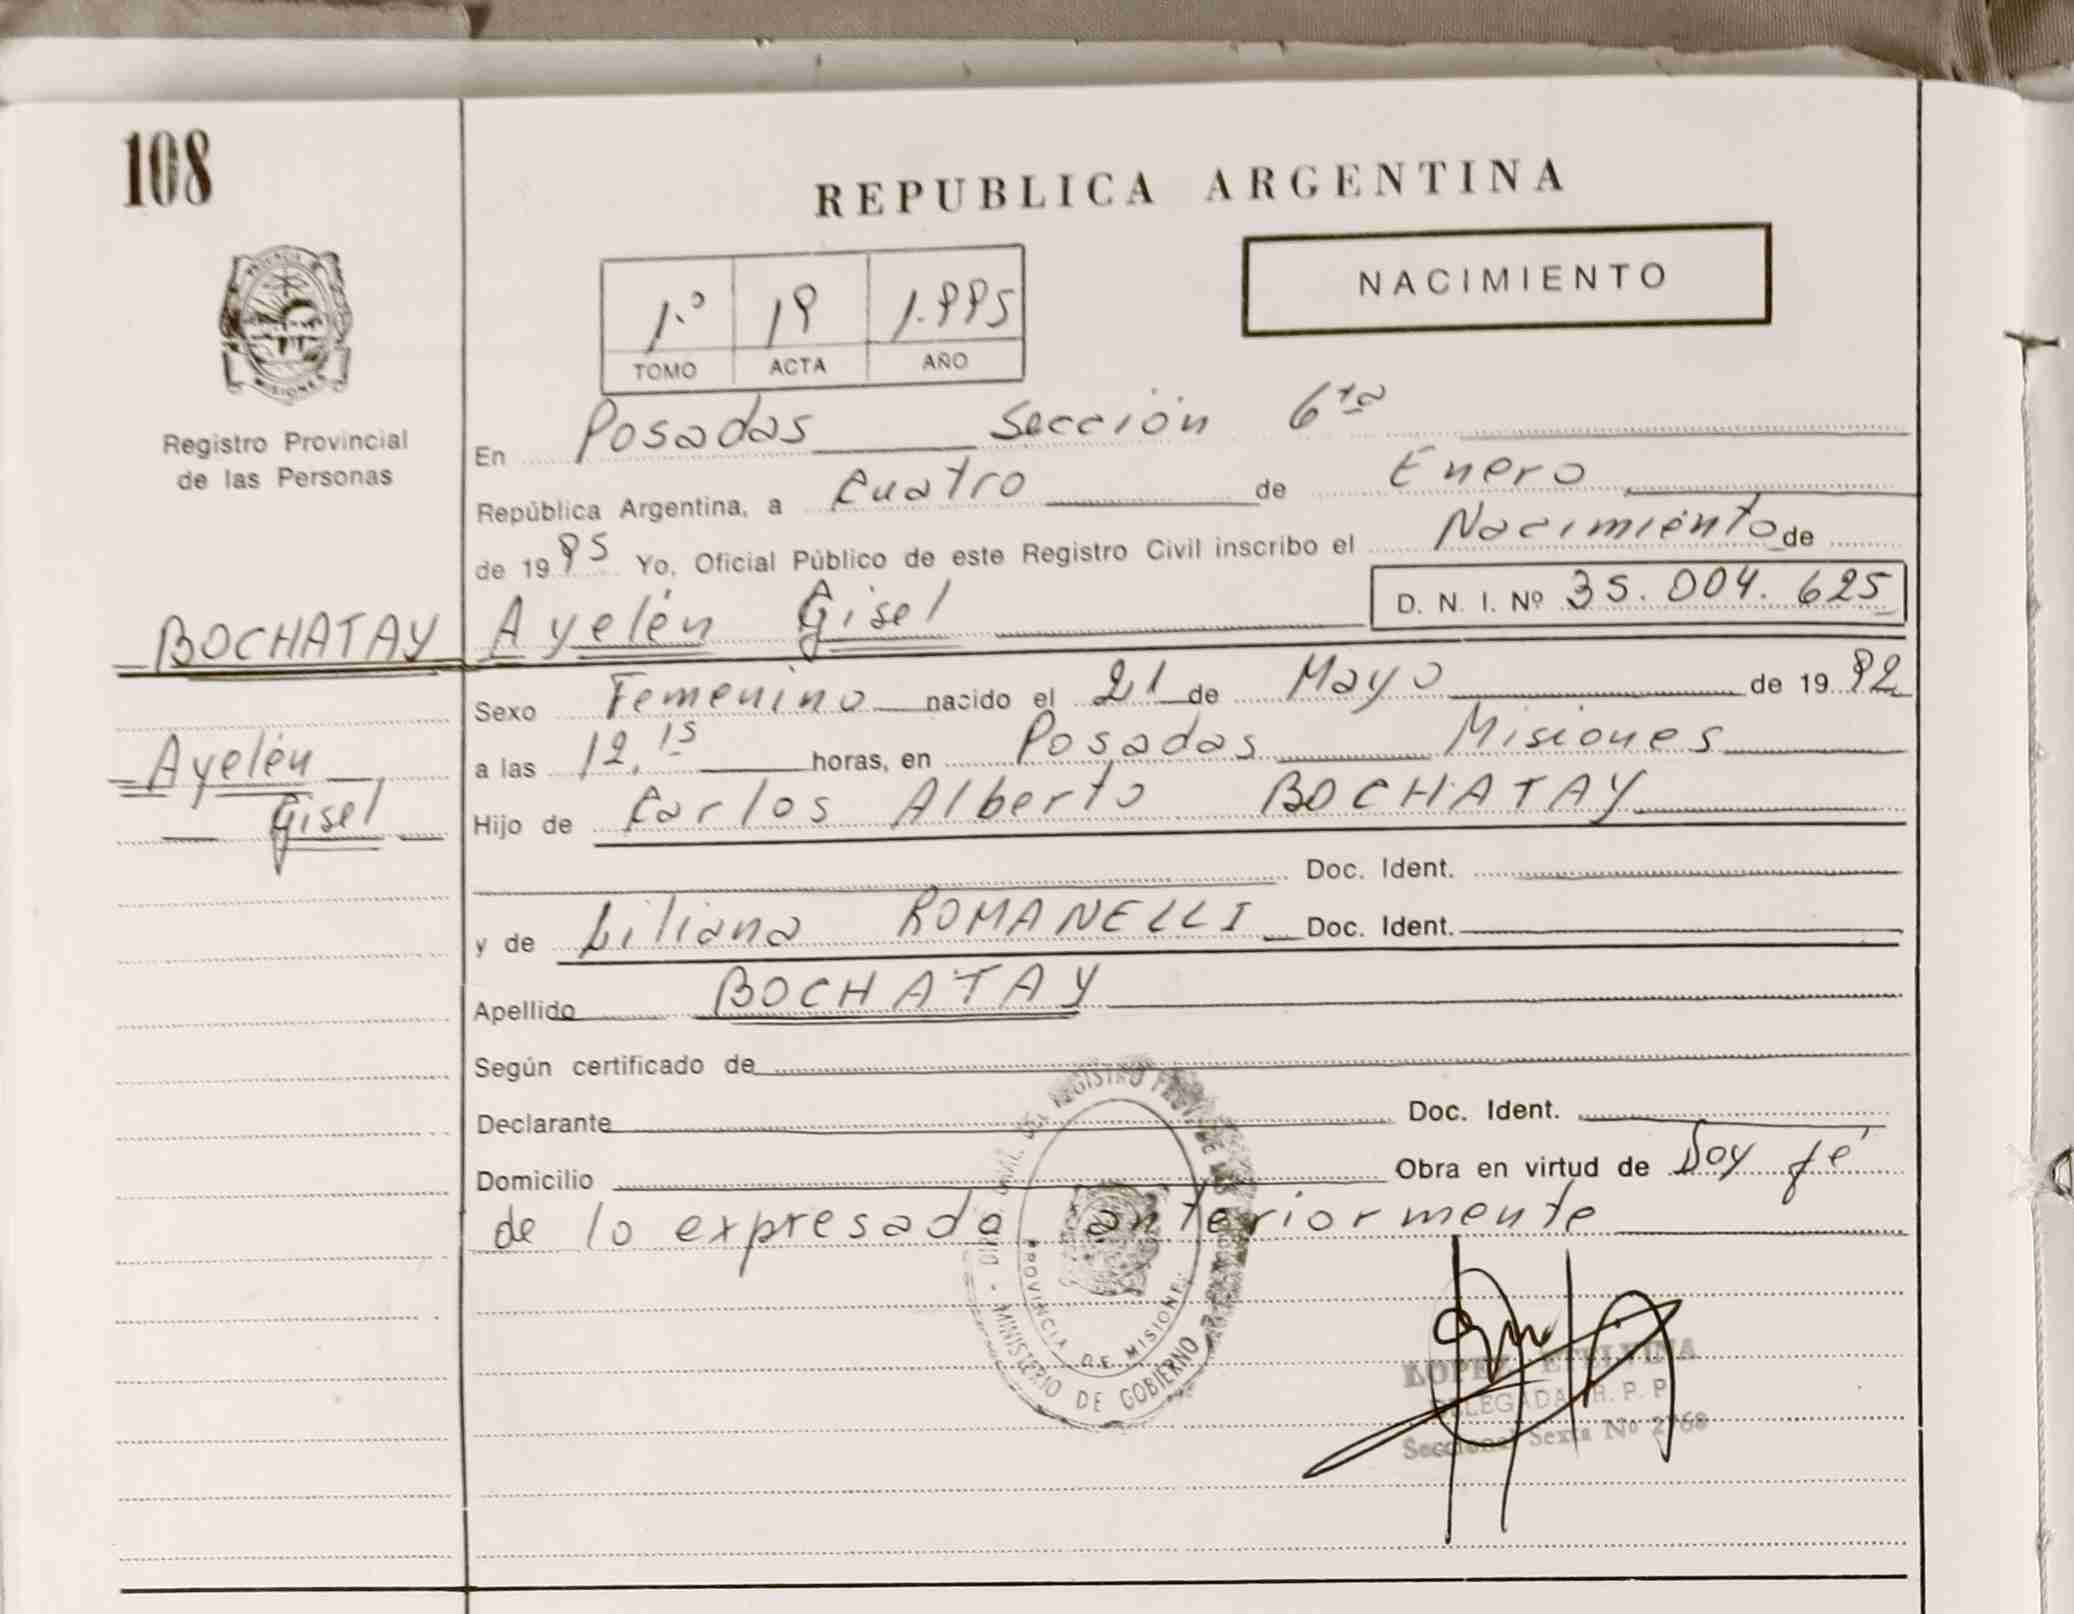 108
REPUBLICA ARGENTINA
NACIMIENTO
1.º 19 1.995
TOMO ACTA AÑO
Registro Provincial
de las Personas
En Posadas Sección 6ta
República Argentina, a Cuatro de Enero
de 1995 Yo, Oficial Público de este Registro Civil inscribo el Nacimiento de
D. N. I. Nº 35.004.625
BOCHATAY Ayelén Gisel
Sexo Femenino nacido el 21 de Mayo de 1992
Ayelén
Gisel
a las 12,15 horas, en Posadas Misiones
Hijo de Carlos Alberto BOCHATAY
Doc. Ident.
y de Liliana ROMANELLI Doc. Ident.
Apellido BOCHATAY
Según certificado de
Declarante Doc. Ident.
Domicilio Obra en virtud de Doy fé
de lo expresado anteriormente
MINISTERIO DE GOBIERNO
PROVINCIA DE MISIONES
LOPEZ ETELVINA
DELEGADA R. P. P
Seccional Sexta Nº 2768